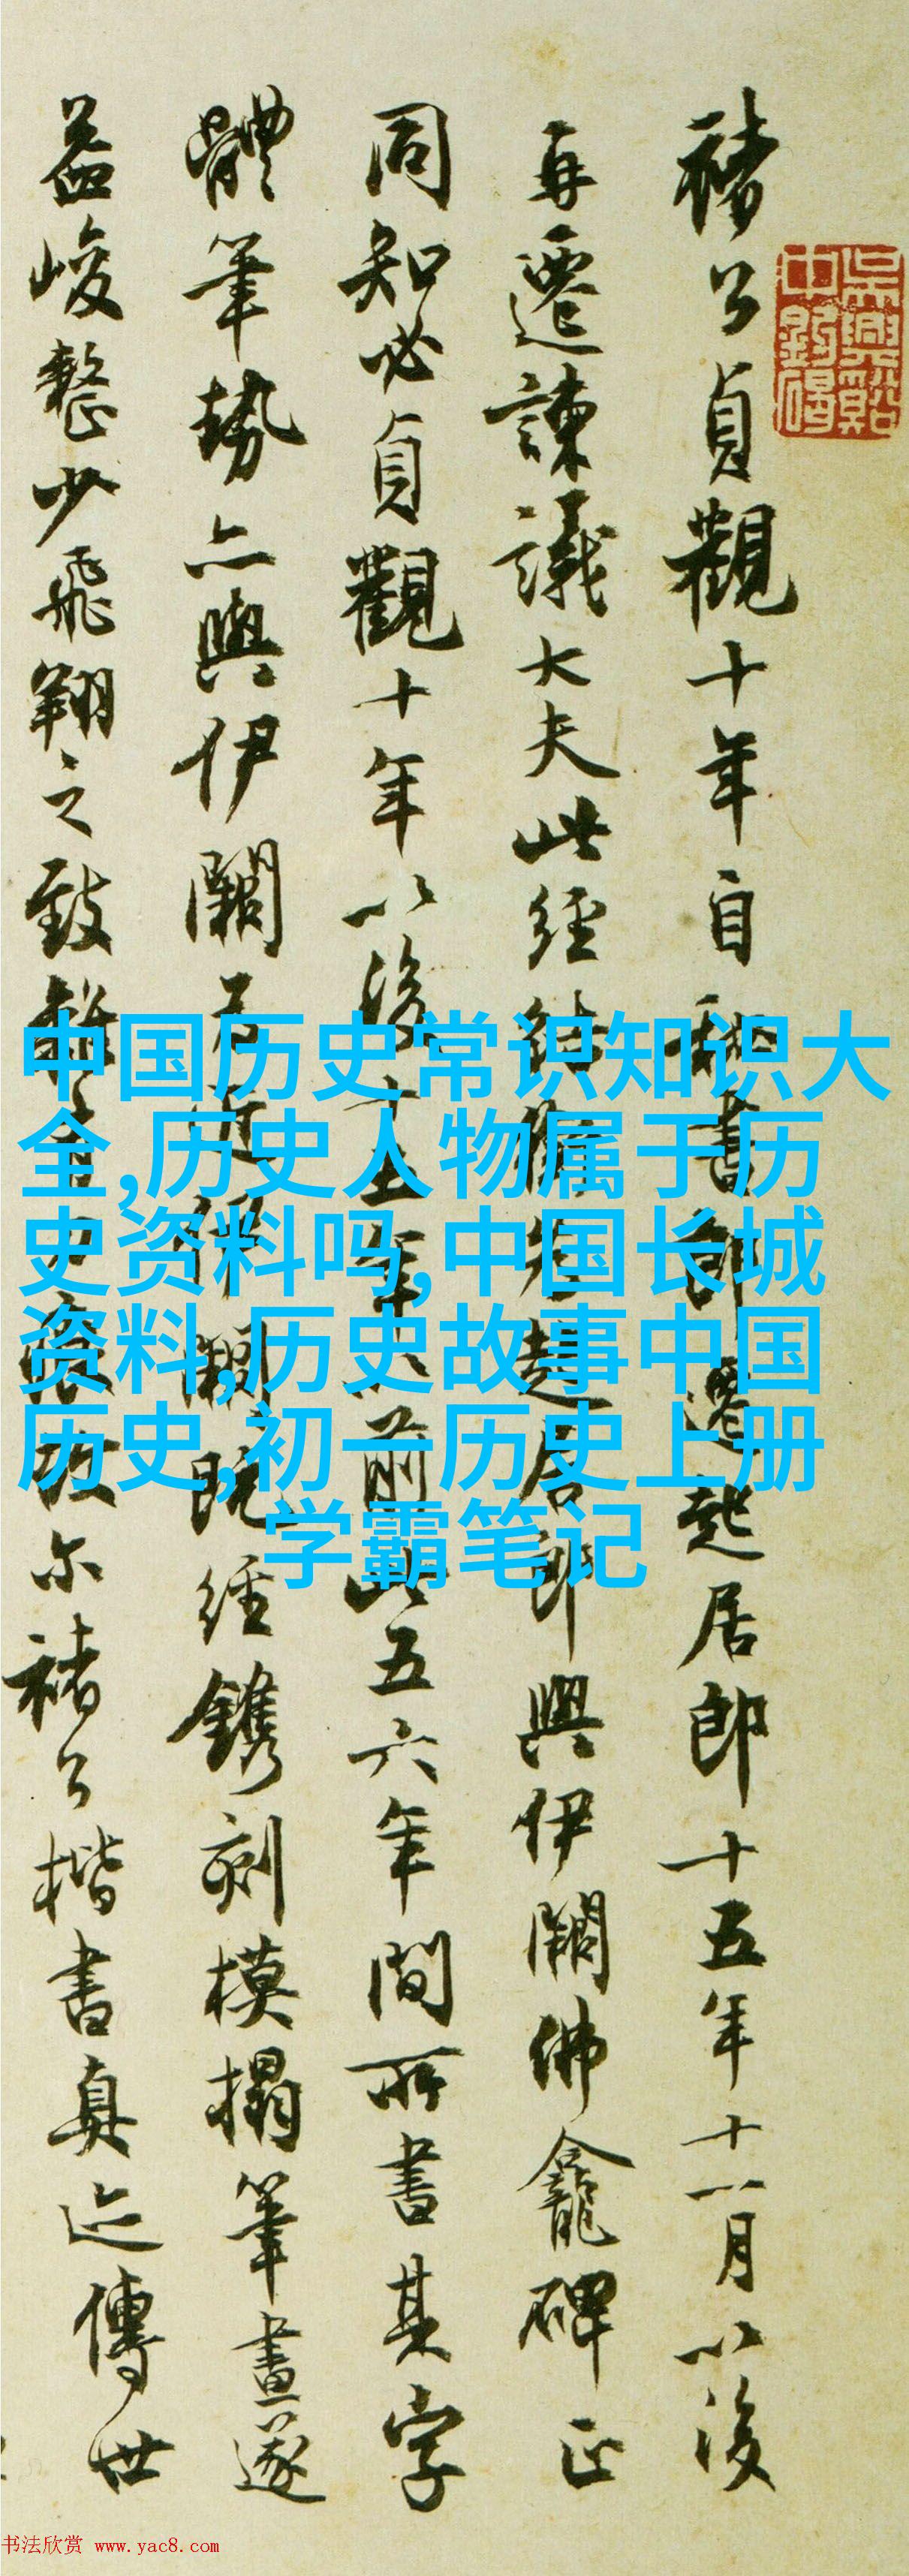 褚公貞觀十年自秘書郎遷起居郎十五年十一月以後
再遷諫議大夫此經結銜起居郎與伊闕佛龕碑正
同知必貞觀十年以後十五年以前此五六年間所書其字
體筆勢亦與伊闕近伊闕既經鐫刻模搨筆畫遂
益峻整少飛翔之致尔褚公楷書真迹傳世
中国历史常识知识大
全,历史人物属于历
史资料吗,中国长城
资料,历史故事中国
历史,初一历史上册
学霸笔记
书法欣赏 www.yac8.com